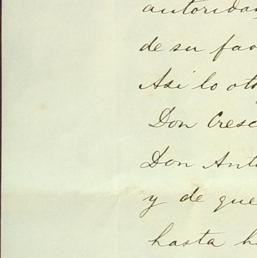 autoridad
de su fav
Asi lo oto
Don Cresc
Don Anto
y de que
hasta h